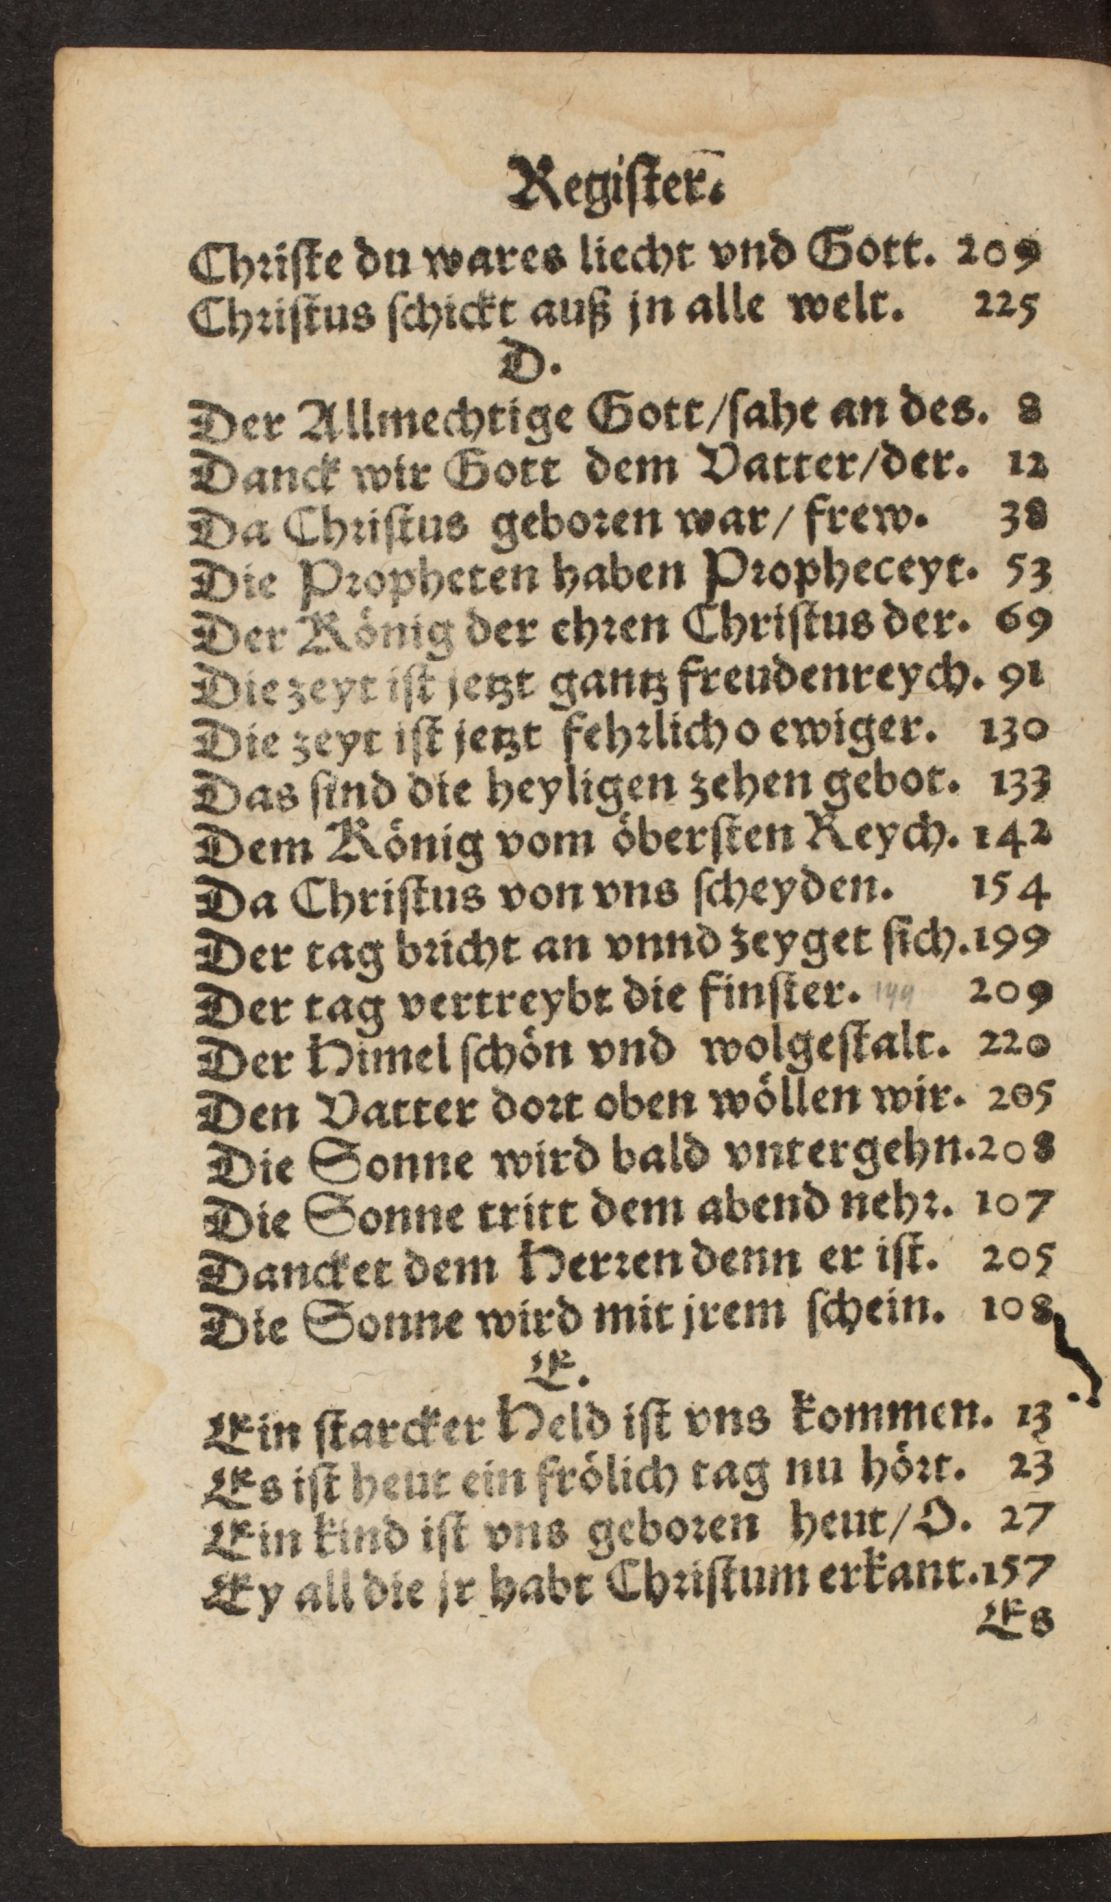 Regiſter.
Chriſte du wares liecht vnd Gott. 209
Chriſtus ſchickt auß jn alle welt. 225
D.
Der Allmechtige Gott/ſahe an des. 8
Danck wir Gott dem Vatter/der. 12
Da Chriſtus geboren war/ frew. 38
Die Propheten haben Propheceyt. 53
Der König der ehren Chriſtus der. 69
Die zeyt iſt jetzt gantz freudenreych. 91
Die zeyt iſt jetzt fehrlich o ewiger. 130
Das ſind die heyligen zehen gebot. 133
Dem König vom öberſten Reych. 142
Da Chriſtus von vns ſcheyden. 154
Der tag bricht an vnnd zeyget ſich. 199
Der tag vertreybt die finſter. 209
Der Himel ſchön vnd wolgeſtalt. 220
Den Vatter dort oben wöllen wir. 205
Die Sonne wird bald vntergehn. 208
Die Sonne tritt dem abend nehr. 107
Dancket dem Herren denn er iſt. 205
Die Sonne wird mit jrem ſchein. 108
E.
Ein ſtarcker Held iſt vns kommen. 13
Es iſt heut ein frölich tag nu hört. 23
Ein kind iſt vns geboren heut/O. 27
Ey all die jr habt Chriſtum erkant. 157
Es